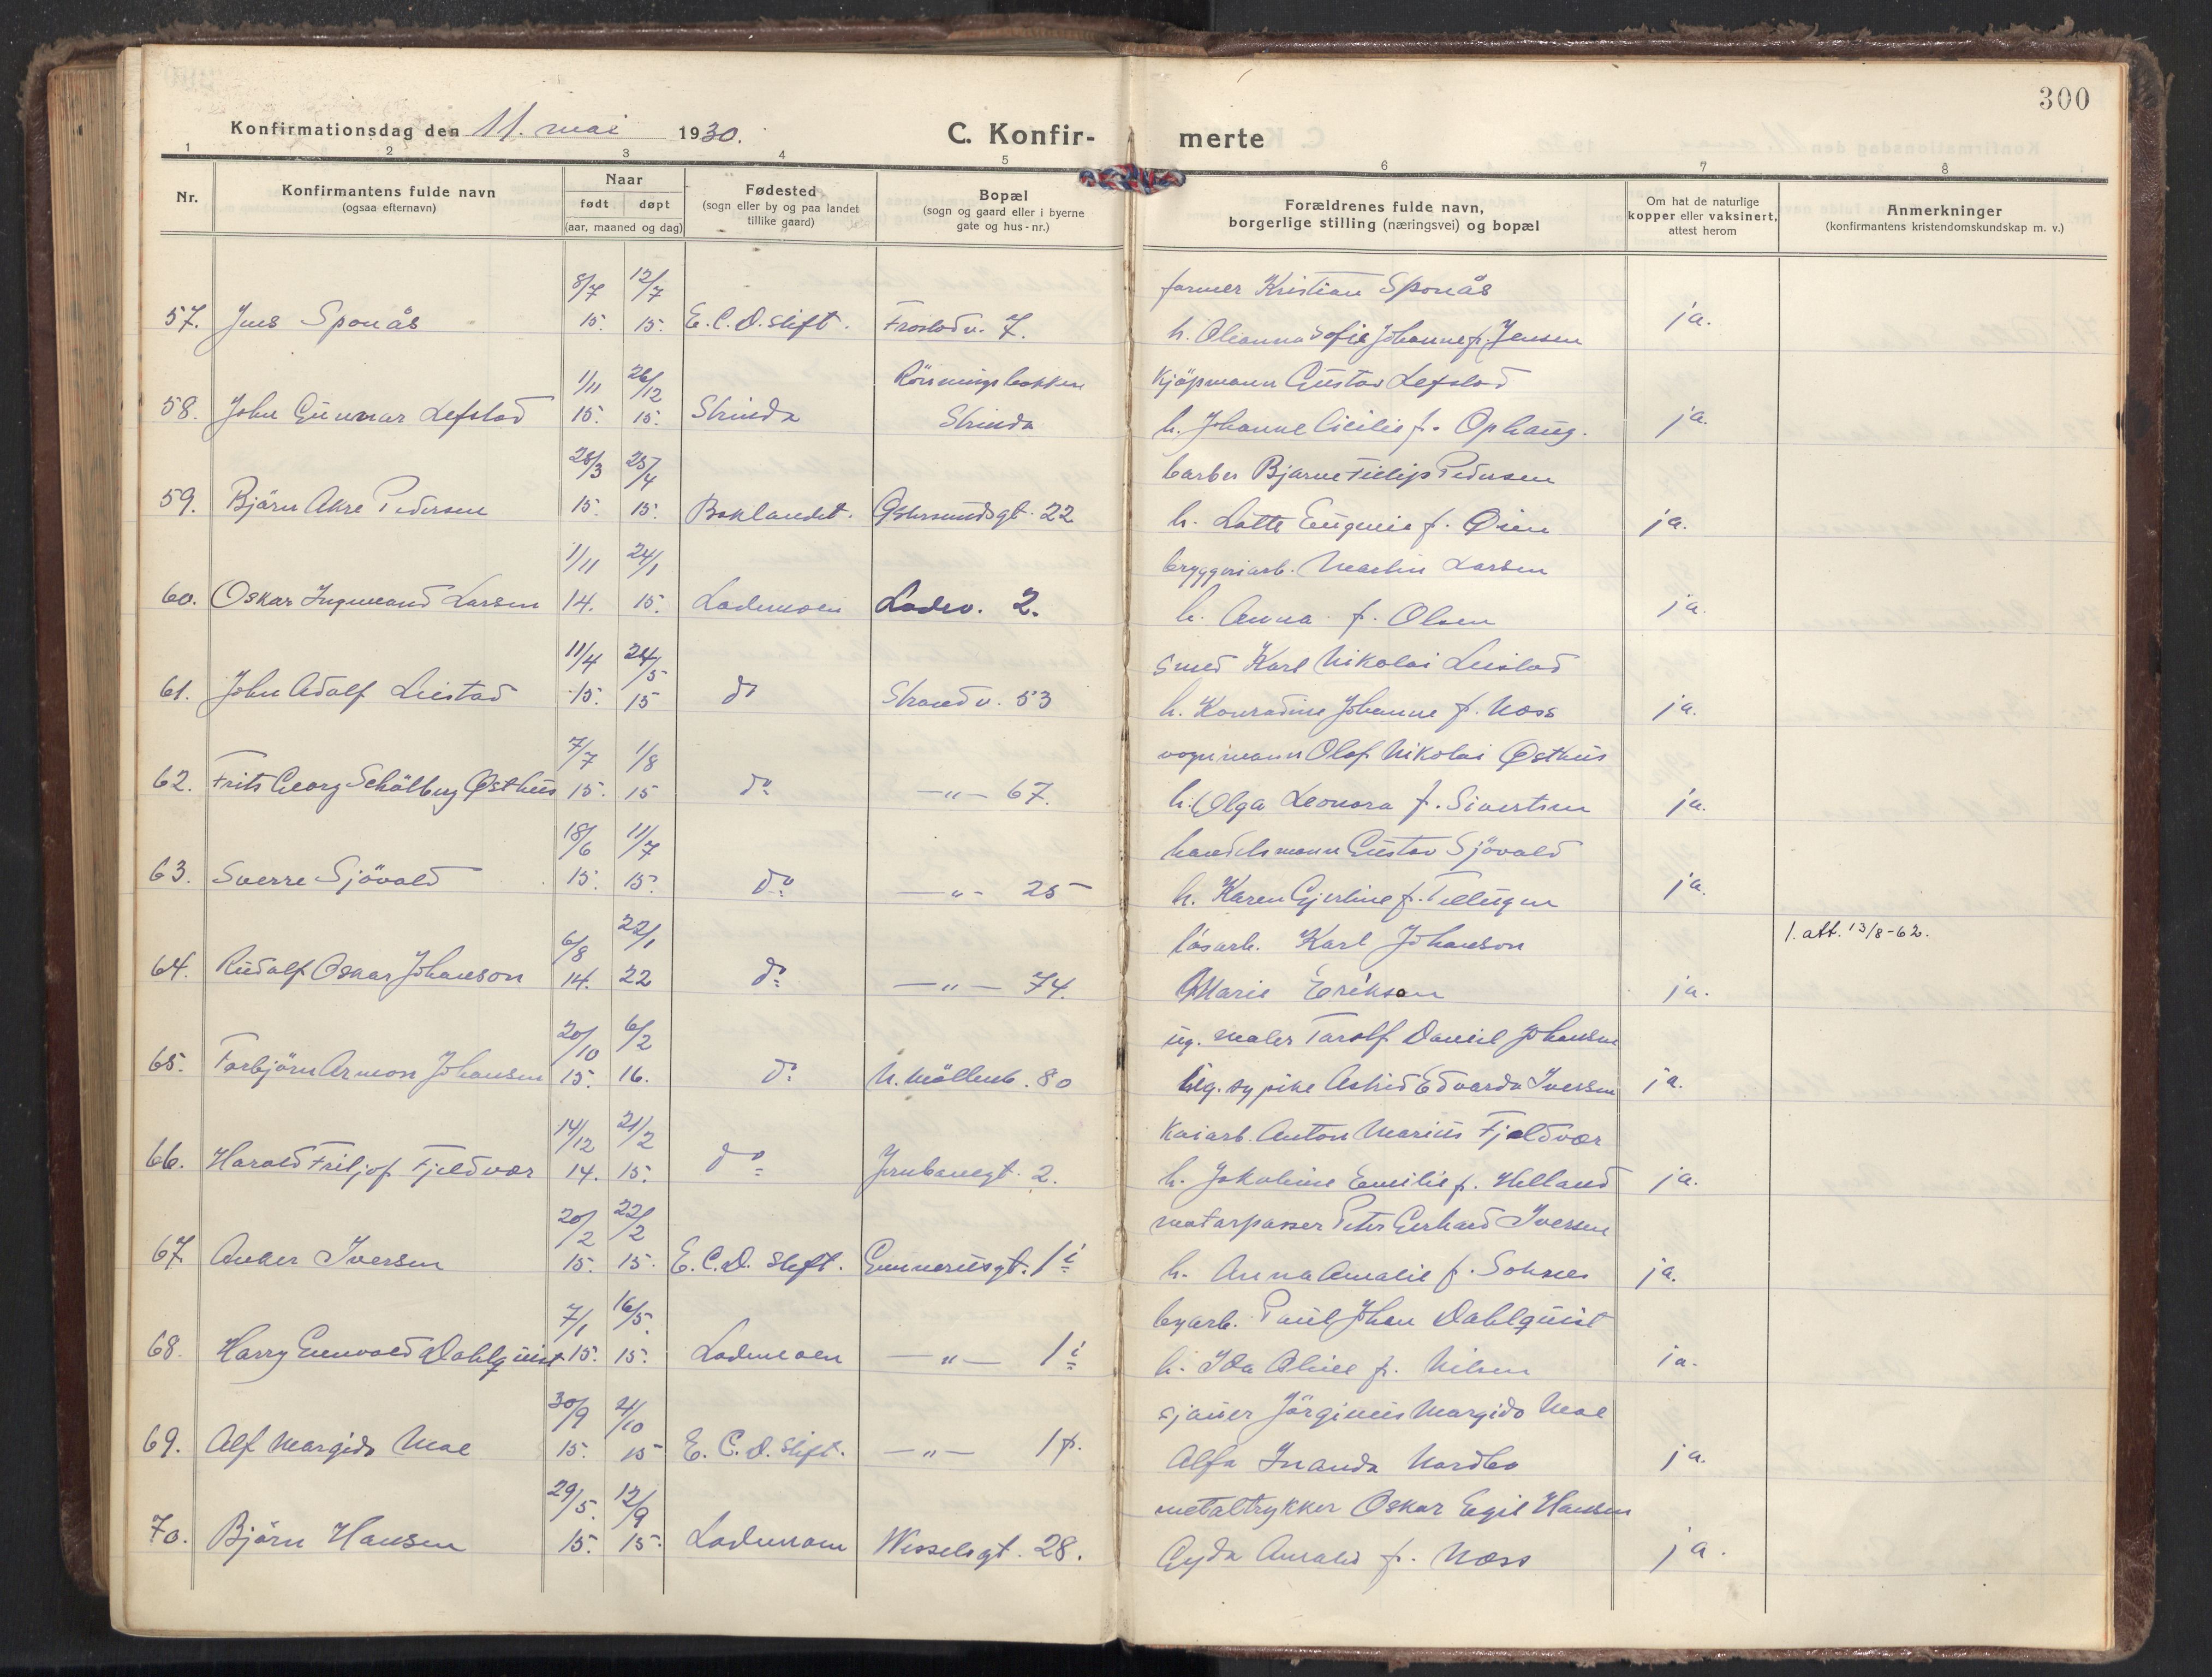 300
Konfirmationsdag den 11. mai 1930.
C. Konfir- merte
1 2 3 4 5 6 7 8
Nr.
Konfirmantens fulde navn
(ogsaa efternavn)
Naar
født døpt
(aar, maaned og dag)
Fødested
(sogn eller by og paa landet
tillike gaard)
Bopæl
(sogn og gaard eller i byerne
gate og hus-nr.)
Forældrenes fulde navn,
borgerlige stilling (næringsvei) og bopæl
Om hat de naturlige
kopper eller vaksinert,
attest herom
Anmerkninger
(konfirmantens kristendomskundskap m. v.)
8/7 12/7 farmer Kristian Sponås
57. Jens Sponås 15. 15. E. C. D. stift. Frostadv. 7. h. Oleanna Sofie Johanne f. Jensen ja.
1/11 26/12 Rönningsbakken kjöpmann Gustav Lefstad
58. John Gunnar Lefstad 15. 15. Strinda Strinda h. Johanne Cicilie f. Ophaug. ja.
28/3 25/4 barber Bjarne Filip Pedersen
59. Björn Akre Pedersen 15. 15. Baklandet. Östersundsgt. 22 h. Lotte Eugenie f. Öien ja.
1/11 24/1 bryggeriarb. Martin Larsen
60. Oskar Ingmand Larsen 14. 15. Lademoen Ladev. 2. h. Anna f. Olsen ja.
11/4 24/5 smed Karl Nikolai Leistad
61. John Adolf Leistad 15. 15 do Strandv. 53 h. Konradine Johanne f. Næss ja.
7/7 1/8 vognmann Olaf Nikolai Østhus
62. Frits Georg Schölberg Østhus 15. 15 do — " — 67. h. Olga Leonora f. Sivertsen ja.
18/6 11/7 handelsmann Gustav Sjövold
63. Sverre Sjövold 15. 15. do — " — 25 h. Karen Gjertine f. Tellugen ja.
6/8 22/1 lösarb. Karl Johanson 1. att. 13/8-62.
64. Rudolf Oskar Johanson 14. 22 do — " — 74. Marie Erikson ja.
20/10 6/2 ug. maler Torolf Daniel Johansen
65. Torbjörn Armon Johansen 15. 16. do N. Möllenb. 80 ug. sypike Astrid Edvarda Iversen ja.
14/12 21/2 kaiarb. Anton Marius Fjeldvær
66. Harald Fritjof Fjeldvær 14. 15. do Jernbanegt. 2. h. Jakobine Emilie f. Helland ja.
20/2 22/2 motorpasser Peter Gerhard Iversen
67. Anker Iversen 15. 15. E. C. D. Stift. Gunnerusgt. 1 i h. Anna Amalie f. Soknes ja.
7/1 16/5. byarb. Paul Johan Dahlquist
68. Harry Enevold Dahlquist 15. 15. Lademoen — " — 1 i h. Ida Oline f. Nilsen ja.
30/9 4/10 sjauer Jörginius Margido Moe
69. Alf Margido Moe 15. 15 E. C. D. Stift. — " — 1 p. Alfa Inanda Nordbo ja.
29/5. 12/9 metaltrykker Oskar Egil Hansen
70. Björn Hansen 15. 15. Lademoen Wesselsgt. 28. Gyda Amalie f. Næss ja.